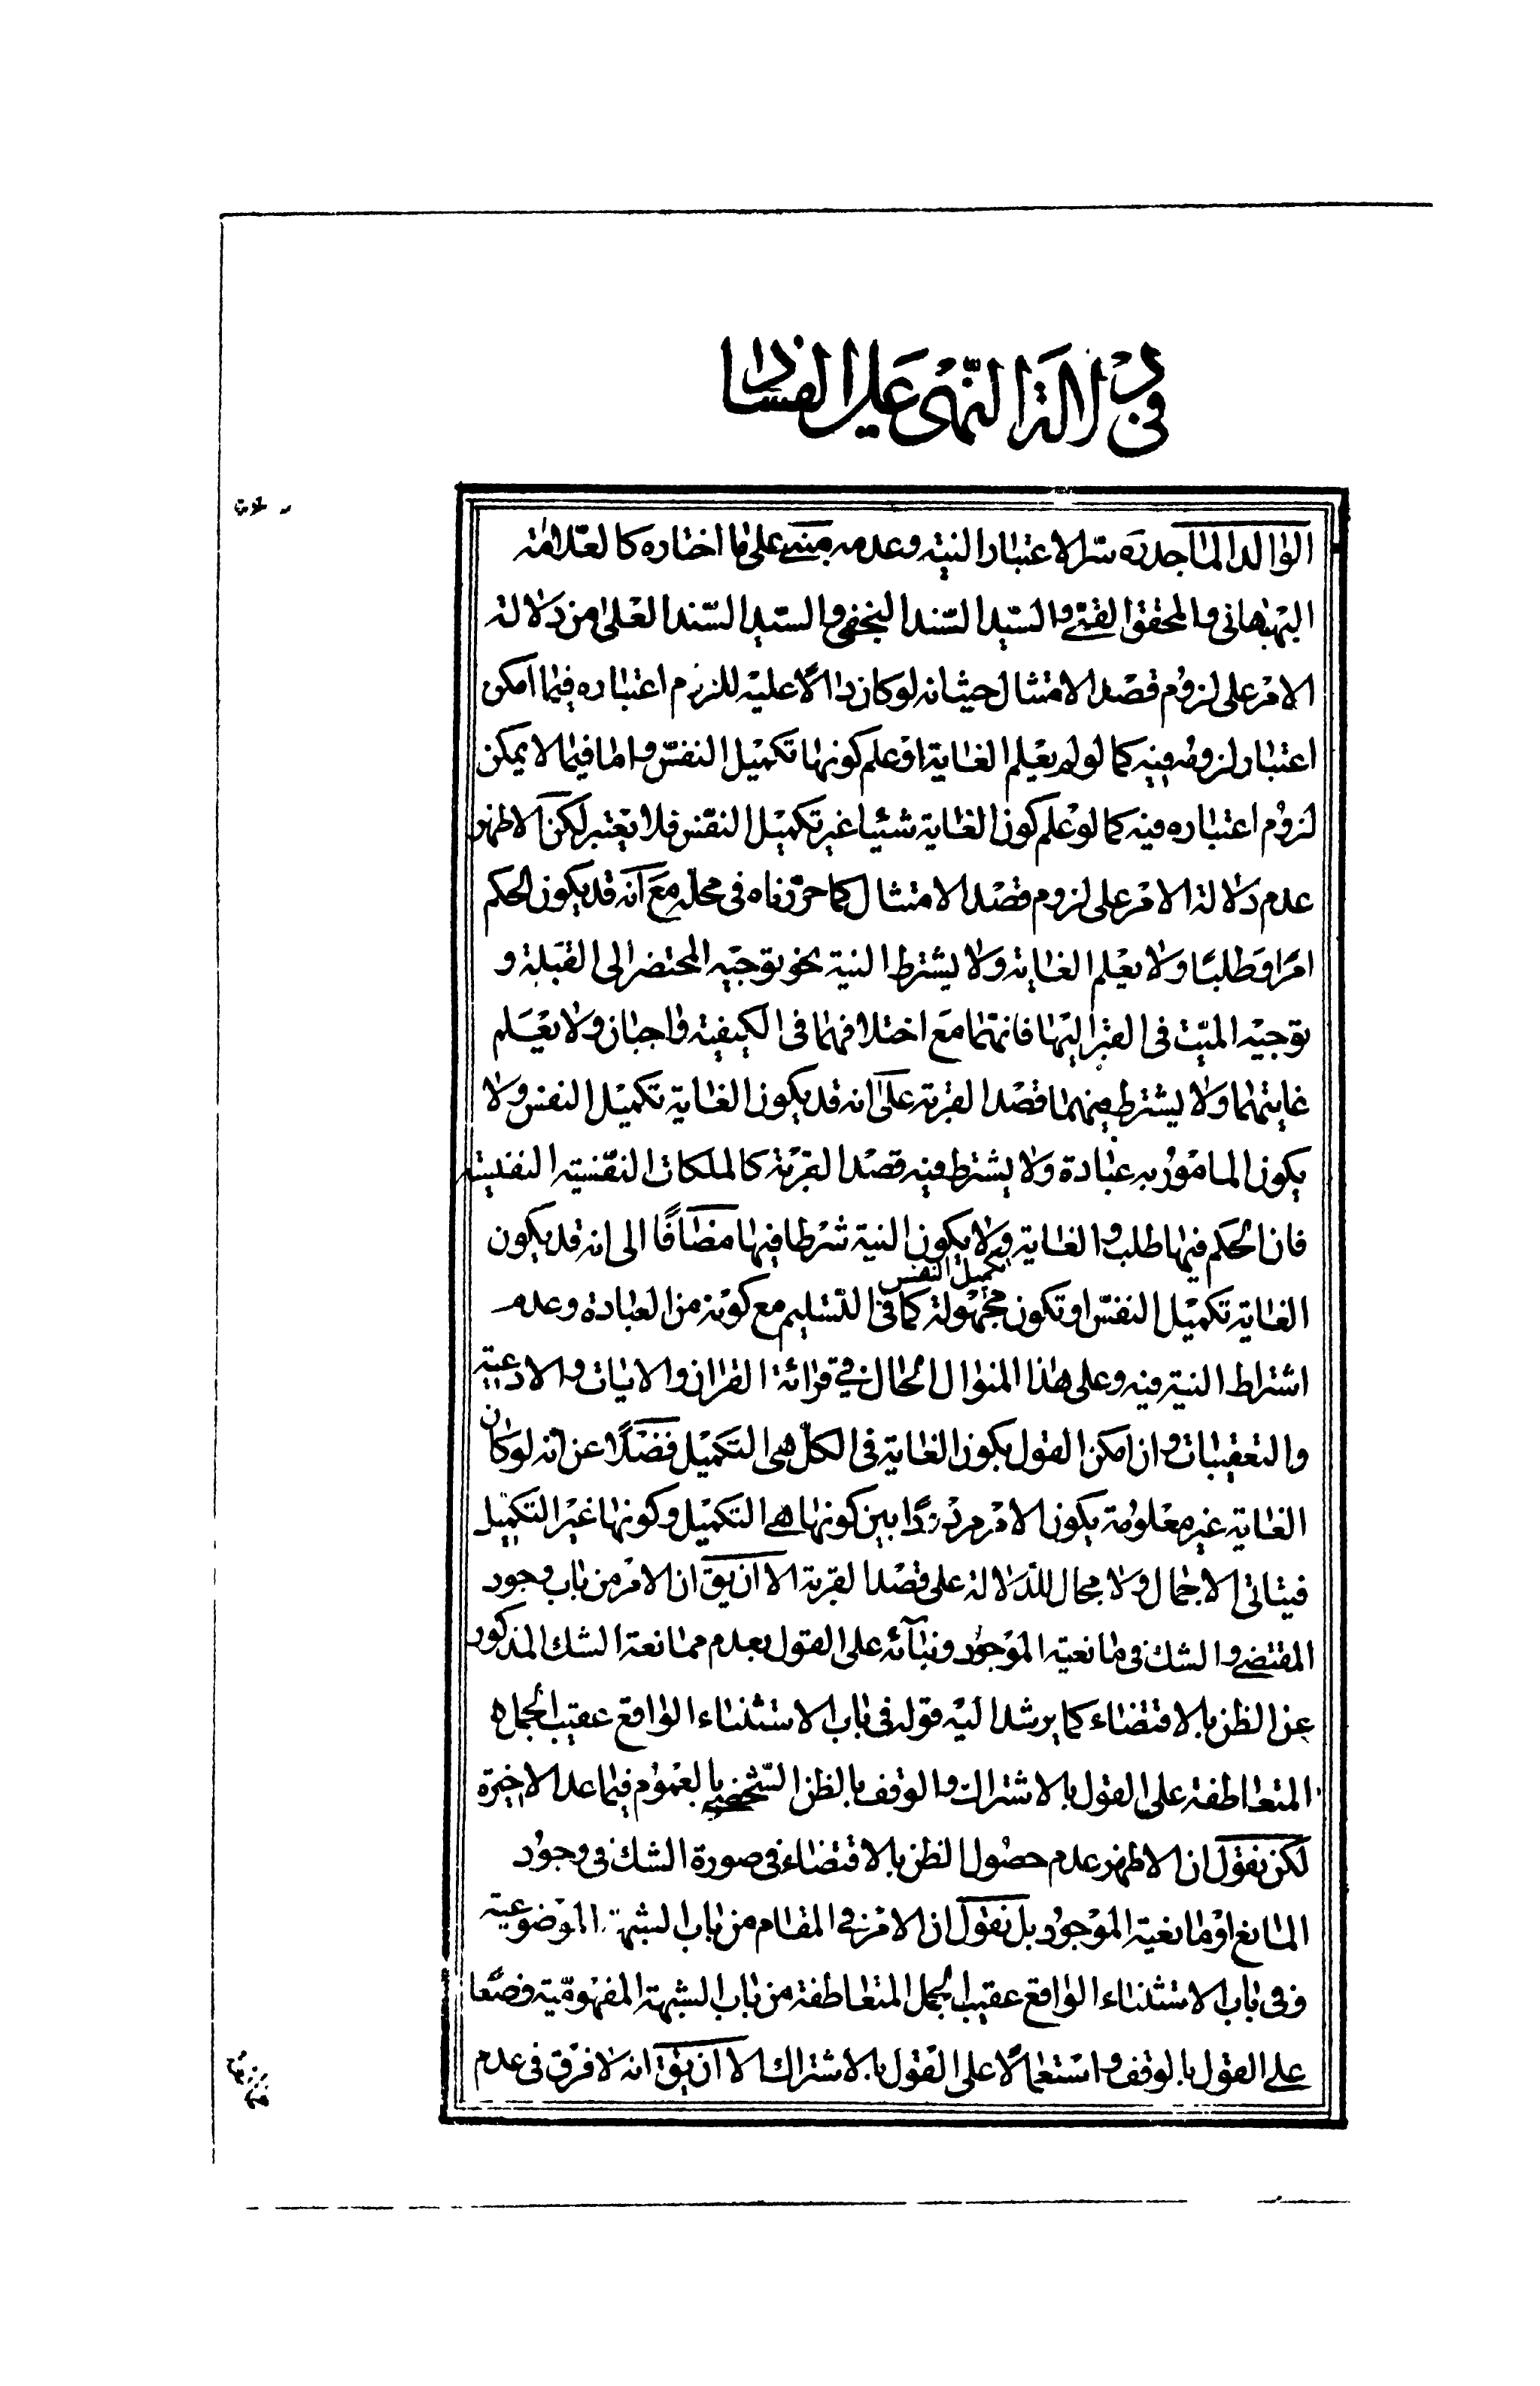 في دلالة النهى على الفساد
الوالد الماجد ره سرا لاعتبار النية وعدمه مبنى على ما اختاره كالعلامة
البهبهانى والمحقق القمى والسيد السند النجفى والسيد السند العلى من دلالة
الامر على لزوم قصد الامتثال حيث انه لو كان دالا عليه للزم اعتباره فيما امكن
اعتبار لزومه فيه كما لو لم يعلم الغاية او علم كونها تكميل النفس واما فيما لا يمكن
لزوم اعتباره فيه كما لو علم كون الغاية شيئا غير تكميل النفس فلا يعتبر لكن الاظهر
عدم دلالة الامر على لزوم قصد الامتثال كما حررناه فى محله مع انه قد يكون الحكم
امرا وطلبا ولا يعلم الغاية ولا يشترط النية نحو توجيه المحتضر الى القبلة و
توجيه الميت فى القبر اليها فانهما مع اختلافهما فى الكيفية واجبان ولا يعلم
غايتهما ولا يشترط فيهما قصد القربة على انه قد يكون الغاية تكميل النفس ولا
يكون المامور به عبادة ولا يشترط فيه قصد القربة كالملكات النفسية النفيسة
فان الحكم فيها طلب والغاية ولا يكون النية شرطا فيها مضافا الى انه قد يكون
تكميل النفس
الغاية تكميل النفس او تكون مجهولة كما فى التسليم مع كونه من العبادة وعدم
اشتراط النية فيه وعلى هذا المنوال الحال في قرائة القران والايات والادعية
والتعقيبات وان امكن القول بكون الغاية فى الكل هى التكميل فضلا عن انه لو كان
الغاية غير معلومة يكون الامر مرددا بين كونها هي التكميل وكونها غير التكميل
فيتاتى الاجمال ولا مجال للدلالة على قصد القربة الا ان يق ان الامر من باب وجود
المقتضى والشك فى مانعية الموجود وبنائه على القول بعدم ممانعة الشك المذكور
عن الظن بالاقتضاء كما يرشد اليه قوله فى باب الاستثناء الواقع عقيب الجمل
المتعاطفة على القول بالاشتراك والوقف بالظن الشخصى بالعموم فيما عدا الاخيرة
لكن نقول ان الاظهر عدم حصول الظن بالاقتضاء فى صورة الشك فى وجود
المانع او مانعية الموجود بل نقول ان الامر في المقام من باب الشبهة الموضوعية
وفى باب الاستثناء الواقع عقيب الجمل المتعاطفة من باب الشبهة المفهومية وضعا
على القول بالوقف واستعمالا على القول بالاشتراك الا ان يق انه لا فرق فى عدم